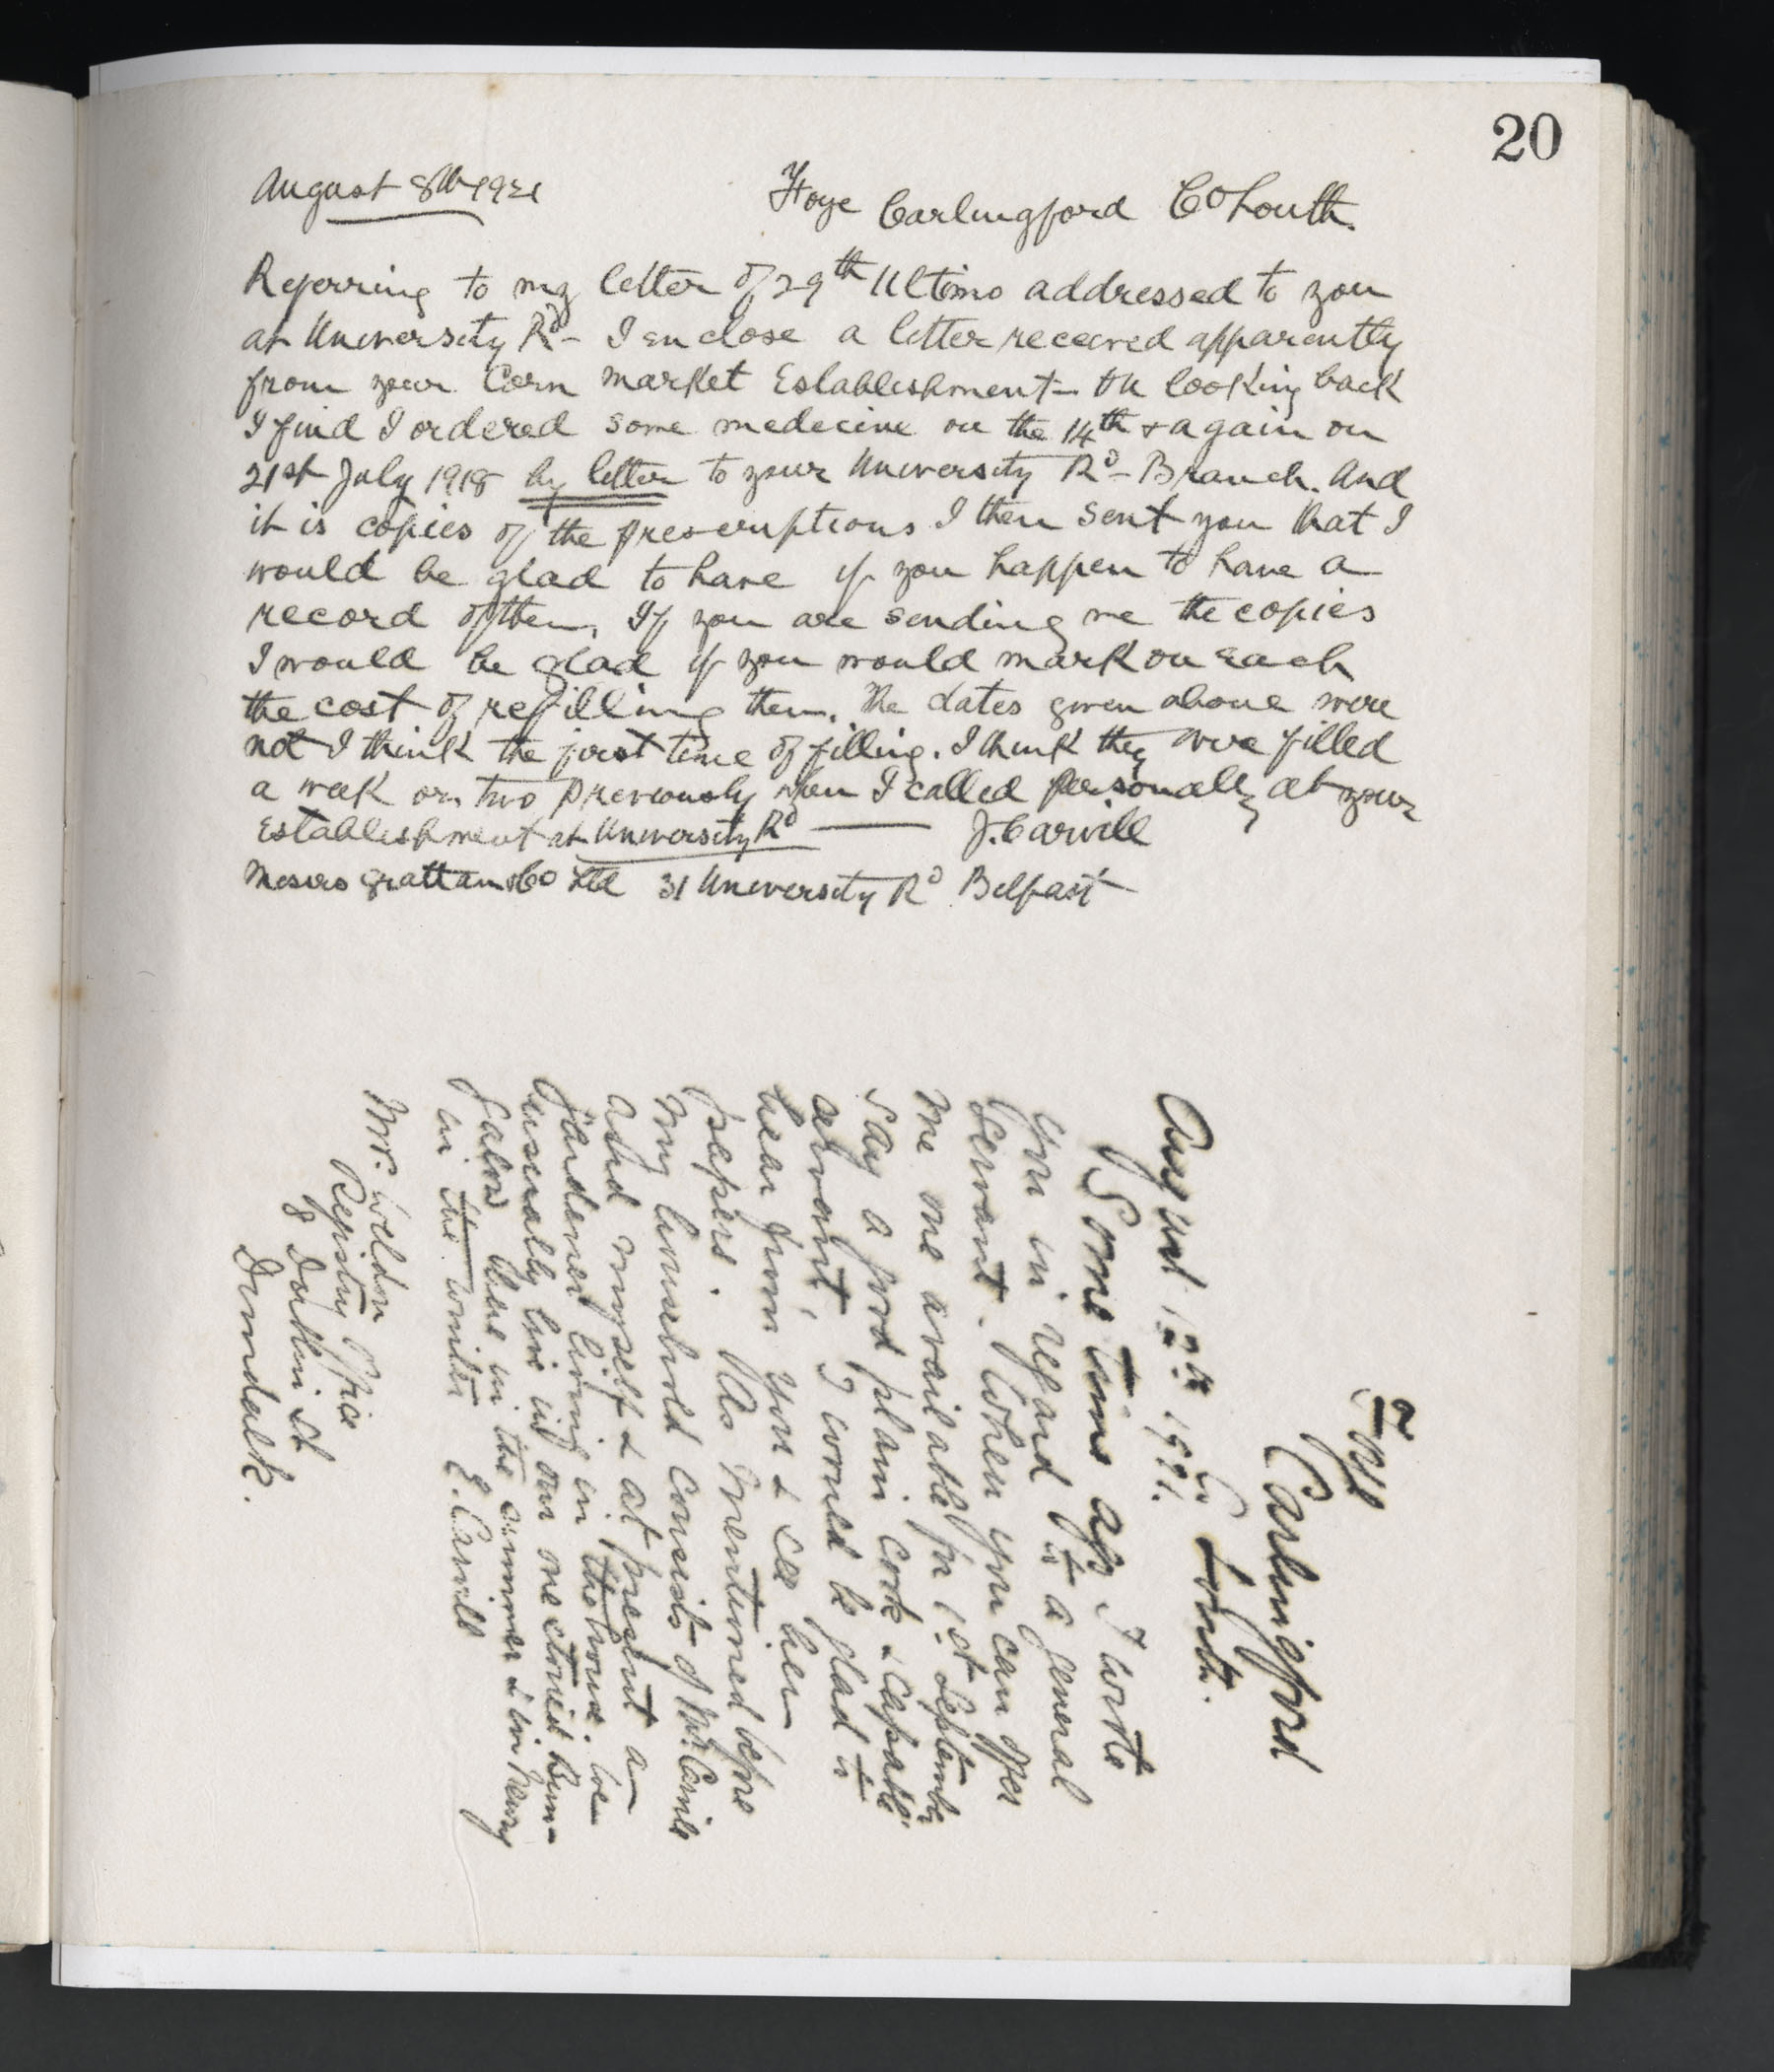 20
August 8th 1921 Foye Carlingford Co Louth.
Referring to my letter of 29th Ultimo addressed to you
at University Rd - I enclose a letter received apparently
from your Corn Market Establishment - On looking back
I find I ordered some medecine on the 14th & again on
21st July 1918 by letter to your University Rd - Branch. And
it is copies of the prescriptions I then sent you that I
would be glad to have if you happen to have a
record of them. If you are sending me the copies
I would be glad if you would mark on each
the cost of refilling them. The dates given above were
not I think the first time of filling. I think they were filled
a week or two previously when I called personally at your
Establishment at University Rd J. Carvill
Messrs Grattan & Co Ltd 31 University Rd Belfast
Foye
Carlingford
Co Louth.
August 12th 1921.
Some time ago I wrote
you in regard to a general
servant. When you can offer
me one available for 1st September
say a good plain cook & capable
servant, I would be glad to
hear from you & see her
papers. As mentioned before
my household consists of Mr. Carvill
and myself & at present a
gardener living in the house. We
usually live in our one storied Bun-
galow here in the summer & in Newry
in the winter E. Carvill
Mrs. Weldon
Registry Office
8 Jocelyn St
Dundalk.